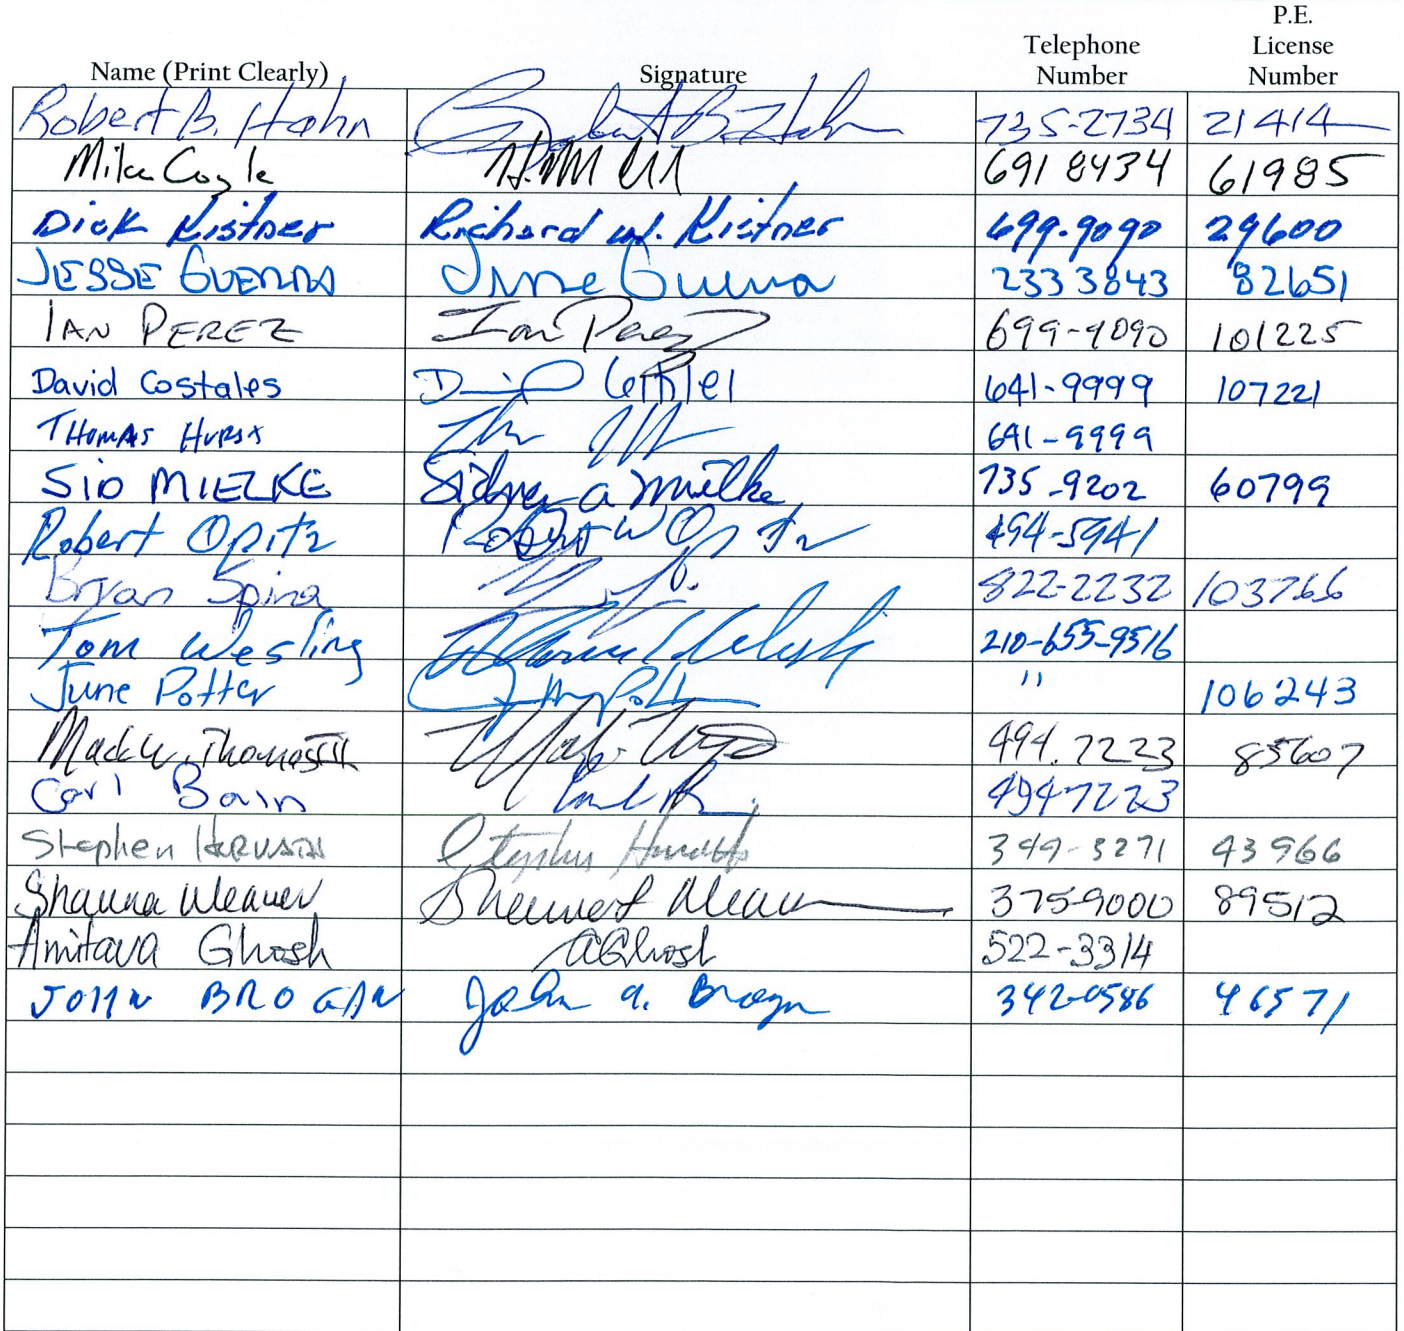 P.E.
Telephone License
Name (Print Clearly) Signature Number Number
Robert B. Hahn Robert B. Hahn 735-2734 21414
Mike Coyle 691 8434 61985
Dick Kistner Richard W. Kistner 699-9090 29600
JESSE GUERRA Jesse Guerra 233 3843 82651
IAN PEREZ Ian Perez 699-9090 101225
David Costales 641-9999 107221
THOMAS HURST 641-9999
SID MIELKE Sidney A Mielke 735-9202 60799
Robert Opitz Robert W Opitz 494-5941
Bryan Spina 822-2232 103766
Tom Wesling 210-655-9516
June Potter " 106243
Mack W. Thomas III 494.7223 85607
Carl Bain 494-7223
Stephen 349-3271 43966
Shauna Weaver Weaver 375-9000 89512
Amitava Ghosh AGhosh 522-3314
JOHN BROGAN John A. Brogan 342-0586 46571